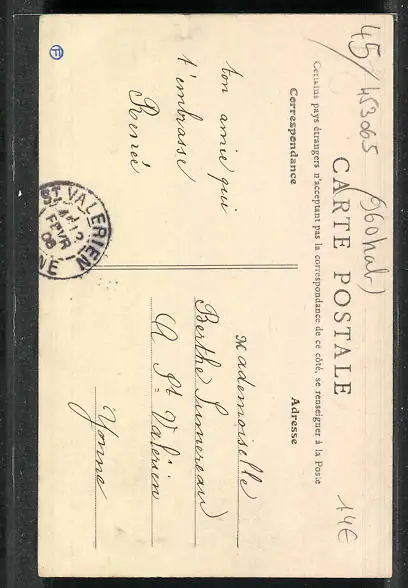 45/453065 (960 hab)
CARTE POSTALE
Certains pays étrangers n'acceptant pas la correspondance de ce côté, se renseigner à la Poste
Correspondance
Adresse
ton amie qui
t'embrasse
Renée
Mademoiselle
Berthe Sumereau
A St Valérien
Yonne
ST VALERIEN
12
FEVR
08
14€